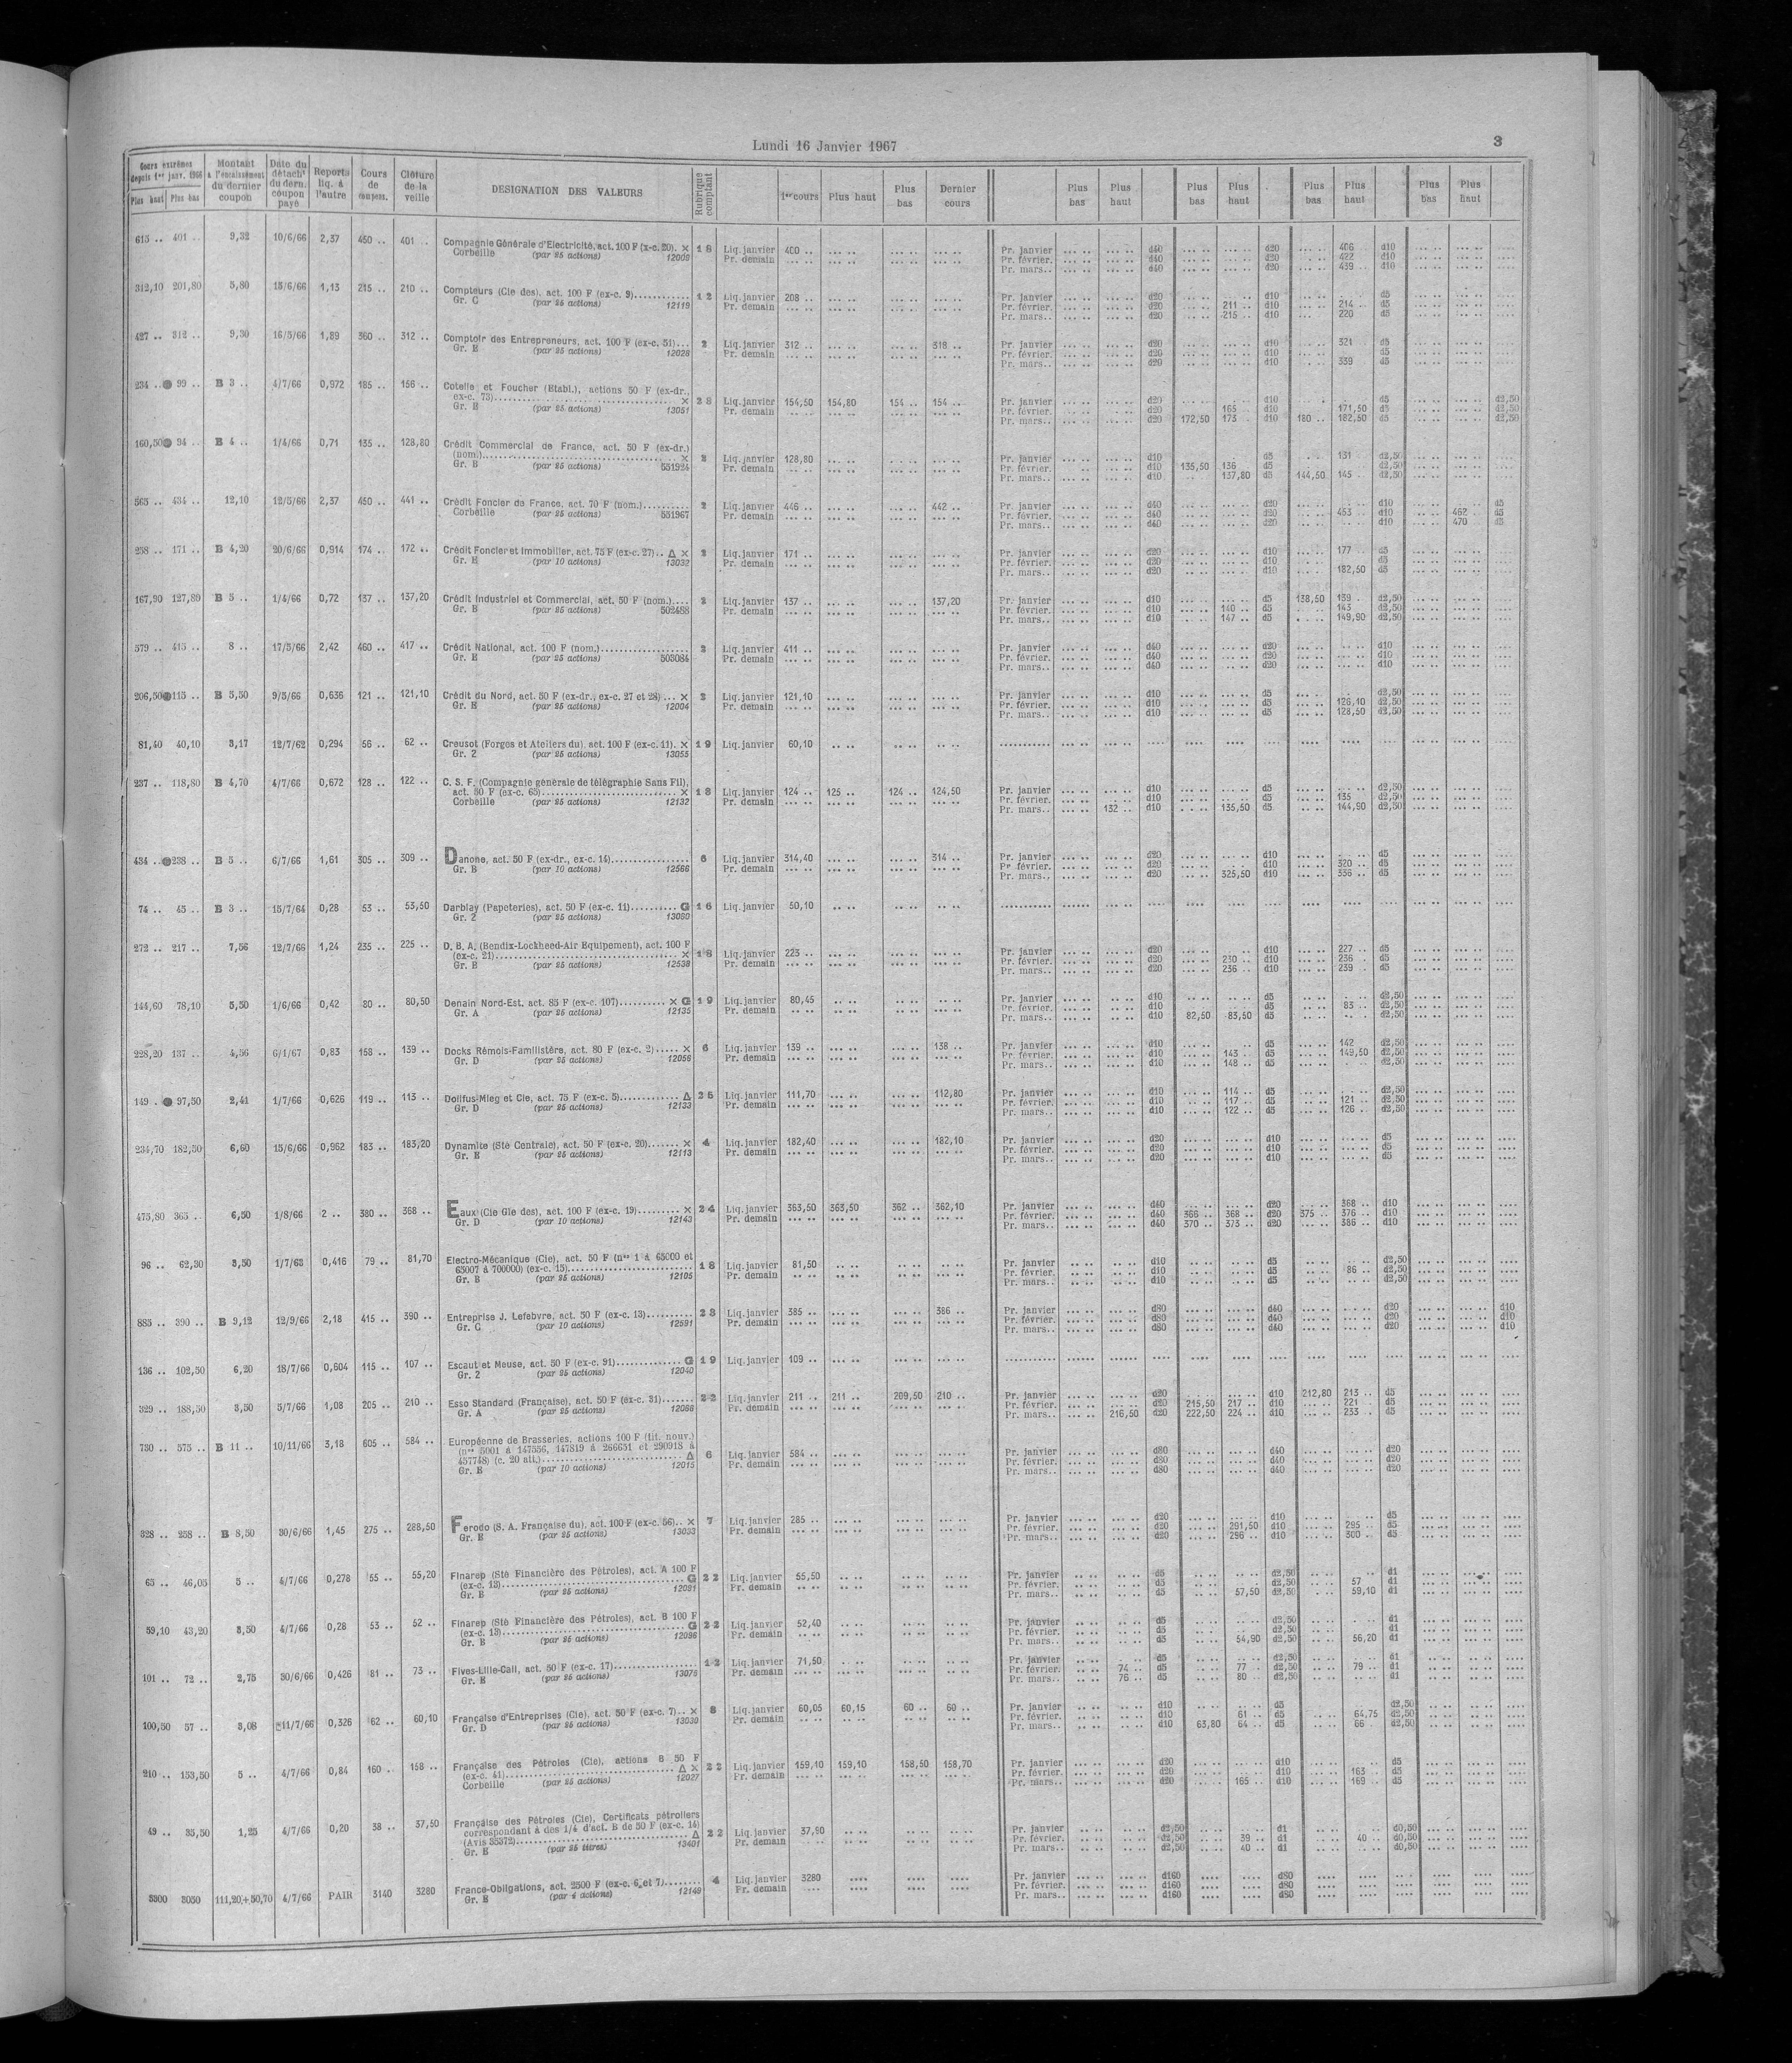 Lundi 16 Janvier 1967
3
Cours extrêmes depuis 1er janv. 1966 Plus haut Plus bas | Montant à l'encaissement du dernier coupon | Date du détacht du dern. coupon payé | Reports liq. à l'autre | Cours de compens. | Clôture de la veille | DESIGNATION DES VALEURS | Rubrique comptant | 1er cours | Plus haut | Plus bas | Dernier cours | Plus bas | Plus haut | Plus bas | Plus haut | Plus bas | Plus haut | Plus bas | Plus haut
615 .. 401 .. 9,32 10/6/66 2,37 450 .. 401 .. Compagnie Générale d'Electricité, act. 100 F (x-c. 20). × 18 Liq. janvier 400 .. Pr. janvier d40 d20 406 d10
Corbeille (par 25 actions) 12009 Pr. demain Pr. février. d40 d20 422 d10
Pr. mars.. d40 d20 439 .. d10
312,10 201,80 5,80 15/6/66 1,13 215 .. 210 .. Compteurs (Cie des), act. 100 F (ex-c. 9) 12 Liq. janvier 208 .. Pr. janvier d20 d10 d5
Gr. C (par 25 actions) 12119 Pr. demain Pr. février. d20 211 .. d10 214 .. d5
Pr. mars.. d20 215 .. d10 220 d5
427 .. 312 .. 9,30 16/5/66 1,89 360 .. 312 .. Comptoir des Entrepreneurs, act. 100 F (ex-c. 51)... 2 Liq. janvier 312 .. 318 .. Pr. janvier d20 d10 321 d5
Gr. E (par 25 actions) 12028 Pr. demain Pr. février. d20 d10 d5
Pr. mars.. d20 d10 339 d5
234 .. 99 .. B 3 .. 4/7/66 0,972 185 .. 156 .. Cotelle et Foucher (Etabl.), actions 50 F (ex-dr.,
ex-c. 73) × 28 Liq. janvier 154,50 154,80 154 .. 154 .. Pr. janvier d20 d10 d5 d2,50
Gr. E (par 25 actions) 13051 Pr. demain Pr. février. d20 165 .. d10 171,50 d5 d2,50
Pr. mars.. d20 172,50 173 .. d10 180 .. 182,50 d5 d2,50
160,50 34 .. B 4 .. 1/4/66 0,71 135 .. 128,80 Crédit Commercial de France, act. 50 F (ex-dr.)
(nom.) × 2 Liq. janvier 128,80 Pr. janvier d10 d5 131 d2,50
Gr. B (par 25 actions) 551924 Pr. demain Pr. février d10 135,50 136 d5 d2,50
Pr. mars.. d10 137,80 d5 144,50 145 .. d2,50
565 .. 434 .. 12,10 12/5/66 2,37 450 .. 441 .. Crédit Foncier de France, act. 70 F (nom.) 2 Liq. janvier 446 .. 442 .. Pr. janvier d40 d20 d10 d5
Corbeille (par 25 actions) 551967 Pr. demain Pr. février. d40 d20 453 .. d10 462 .. d5
Pr. mars.. d40 d20 d10 470 d5
258 .. 171 .. B 4,20 20/6/66 0,914 174 .. 172 .. Crédit Foncier et Immobilier, act. 75 F (ex-c. 27).. Δ × 2 Liq. janvier 171 .. Pr. janvier d20 d10 177 .. d5
Gr. E (par 10 actions) 13032 Pr. demain Pr. février. d20 d10 d5
Pr. mars.. d20 d10 182,50 d5
167,90 127,80 B 5 .. 1/4/66 0,72 137 .. 137,20 Crédit Industriel et Commercial, act. 50 F (nom.).... 2 Liq. janvier 137 .. 137,20 Pr. janvier d10 d5 138,50 139 . d2,50
Gr. B (par 25 actions) 502488 Pr. demain Pr. février. d10 140 .. d5 143 d2,50
Pr. mars.. d10 147 .. d5 149,90 d2,50
579 .. 415 .. 8 .. 17/5/66 2,42 460 .. 417 .. Crédit National, act. 100 F (nom.) 2 Liq. janvier 411 .. Pr. janvier d40 d20 d10
Gr. E (par 25 actions) 503084 Pr. demain Pr. février. d40 d20 d10
Pr. mars.. d40 d20 d10
206,50 115 .. B 5,50 9/5/66 0,636 121 .. 121,10 Crédit du Nord, act. 50 F (ex-dr., ex-c. 27 et 28)... × 2 Liq. janvier 121,10 Pr. janvier d10 d5 d2,50
Gr. E (par 25 actions) 12004 Pr. demain Pr. février. d10 d5 126,10 d2,50
Pr. mars.. d10 d5 128,50 d2,50
81,40 40,10 3,17 12/7/62 0,294 56 .. 62 .. Creusot (Forges et Ateliers du), act. 100 F (ex-c. 11). × 19 Liq. janvier 60,10
Gr. 2 (par 25 actions) 13055
237 .. 118,80 B 4,70 4/7/66 0,672 128 .. 122 .. C. S. F. (Compagnie générale de télégraphie Sans Fil),
act. 50 F (ex-c. 65) × 18 Liq. janvier 124 .. 125 .. 124 .. 124,50 Pr. janvier d10 d5 d2,50
Corbeille (par 25 actions) 12132 Pr. demain Pr. février. d10 d5 135 d2,50
Pr. mars.. 132 .. d10 135,50 d5 144,90 d2,50
434 .. 238 .. B 5 .. 6/7/66 1,61 305 .. 309 .. Danone, act. 50 F (ex-dr., ex-c. 14) 6 Liq. janvier 314,40 314 .. Pr. janvier d20 d10 d5
Gr. B (par 10 actions) 12566 Pr. demain Pr. février. d20 d10 320 .. d5
Pr. mars.. d20 325,50 d10 336 .. d5
74 .. 45 .. B 3 .. 15/7/64 0,28 53 .. 53,50 Darblay (Papeteries), act. 50 F (ex-c. 11) G 16 Liq. janvier 50,10
Gr. 2 (par 25 actions) 13080
272 .. 217 .. 7,56 12/7/66 1,24 235 .. 225 .. D. B. A. (Bendix-Lockheed-Air Equipement), act. 100 F
(ex-c. 21) × 18 Liq. janvier 223 .. Pr. janvier d20 d10 227 .. d5
Gr. B (par 25 actions) 12538 Pr. demain Pr. février. d20 230 .. d10 236 . d5
Pr. mars.. d20 236 .. d10 239 . d5
144,60 78,10 5,50 1/6/66 0,42 80 .. 80,50 Denain Nord-Est, act. 85 F (ex-c. 107) × G 19 Liq. janvier 80,45 Pr. janvier d10 d5 d2,50
Gr. A (par 25 actions) 12135 Pr. demain Pr. février. d10 d5 83 .. d2,50
Pr. mars.. d10 82,50 83,50 d5 d2,50
228,20 137 .. 4,56 6/1/67 0,83 158 .. 139 .. Docks Rémois-Familistère, act. 80 F (ex-c. 2)..... × 6 Liq. janvier 139 .. 138 .. Pr. janvier d10 d5 142 d2,50
Gr. D (par 25 actions) 12056 Pr. demain Pr. février. d10 143 .. d5 149,50 d2,50
Pr. mars.. d10 148 .. d5 d2,50
149 .. 97,50 2,41 1/7/66 0,626 119 .. 113 .. Dollfus-Mieg et Cie, act. 75 F (ex-c. 5) Δ 25 Liq. janvier 111,70 112,80 Pr. janvier d10 114 .. d5 d2,50
Gr. D (par 25 actions) 12133 Pr. demain Pr. février. d10 117 .. d5 121 .. d2,50
Pr. mars.. d10 122 .. d5 126 .. d2,50
234,70 182,50 6,60 15/6/66 0,962 183 .. 183,20 Dynamite (Sté Centrale), act. 50 F (ex-c. 20) × 4 Liq. janvier 182,40 182,10 Pr. janvier d20 d10 d5
Gr. E (par 25 actions) 12113 Pr. demain Pr. février. d20 d10 d5
Pr. mars.. d20 d10 d5
475,80 365 .. 6,50 1/8/66 2 .. 380 .. 368 .. Eaux (Cie Gle des), act. 100 F (ex-c. 19) × 24 Liq. janvier 363,50 363,50 362 .. 362,10 Pr. janvier d40 d20 368 .. d10
Gr. D (par 10 actions) 12143 Pr. demain Pr. février. d40 366 .. 368 .. d20 375 .. 376 .. d10
Pr. mars.. d40 370 .. 373 .. d20 386 .. d10
96 .. 62,30 3,50 1/7/63 0,416 79 .. 81,70 Electro-Mécanique (Cie), act. 50 F (nos 1 à 65000 et
65007 à 700000) (ex-c. 15) 18 Liq. janvier 81,50 Pr. janvier d10 d5 d2,50
Gr. B (par 25 actions) 12105 Pr. demain Pr. février. d10 d5 86 .. d2,50
Pr. mars.. d10 d5 d2,50
885 .. 390 .. B 9,12 12/9/66 2,18 415 .. 390 .. Entreprise J. Lefebvre, act. 50 F (ex-c. 13) 28 Liq. janvier 385 .. 386 .. Pr. janvier d80 d40 d20 d10
Gr. C (par 10 actions) 12591 Pr. demain Pr. février. d80 d40 d20 d10
Pr. mars.. d80 d40 d20 d10
136 .. 102,50 6,20 18/7/66 0,604 115 .. 107 .. Escaut et Meuse, act. 50 F (ex-c. 91) G 19 Liq. janvier 109 ..
Gr. 2 (par 25 actions) 12040
329 .. 188,50 3,50 5/7/66 1,08 205 .. 210 .. Esso Standard (Française), act. 50 F (ex-c. 31) 22 Liq. janvier 211 .. 211 .. 209,50 210 .. Pr. janvier d20 d10 212,80 213 .. d5
Gr. A (par 25 actions) 12086 Pr. demain Pr. février. d20 215,50 217 .. d10 221 d5
Pr. mars.. 216,50 d20 222,50 224 .. d10 233 .. d5
730 .. 575 .. B 11 .. 10/11/66 3,18 605 .. 584 .. Européenne de Brasseries, actions 100 F (tit. nouv.)
(nos 5001 à 147556, 147819 à 266651 et 290918 à
457748) (c. 20 att.) Δ 6 Liq. janvier 584 .. Pr. janvier d80 d40 d20
Gr. E (par 10 actions) 12015 Pr. demain Pr. février. d80 d40 d20
Pr. mars.. d80 d40 d20
328 .. 258 .. B 8,50 30/6/66 1,45 275 .. 288,50 Ferodo (S. A. Française du), act. 100 F (ex-c. 56).. × 7 Liq. janvier 285 .. Pr. janvier d20 d10 d5
Gr. E (par 25 actions) 13033 Pr. demain Pr. février. d20 291,50 d10 295 .. d5
Pr. mars.. d20 296 .. d10 300 .. d5
65 .. 46,05 5 .. 4/7/66 0,278 55 .. 55,20 Finarep (Sté Financière des Pétroles), act. A 100 F
(ex-c. 13) G 22 Liq. janvier 55,50 Pr. janvier d5 d2,50 d1
Gr. B (par 25 actions) 12091 Pr. demain Pr. février. d5 d2,50 57 d1
Pr. mars.. d5 57,50 d2,50 59,10 d1
59,10 43,20 3,50 4/7/66 0,28 53 .. 52 .. Finarep (Sté Financière des Pétroles), act. B 100 F
(ex-c. 13) G 22 Liq. janvier 52,40 Pr. janvier d5 d2,50 d1
Gr. B (par 25 actions) 12096 Pr. demain Pr. février. d5 d2,50 d1
Pr. mars.. d5 54,90 d2,50 56,20 d1
101 .. 72 .. 2,75 30/6/66 0,426 81 .. 73 .. Fives-Lille-Cail, act. 50 F (ex-c. 17) 12 Liq. janvier 71,50 Pr. janvier d5 d2,50 d1
Gr. E (par 25 actions) 13076 Pr. demain Pr. février. 74 .. d5 77 .. d2,50 79 .. d1
Pr. mars.. 76 .. d5 80 .. d2,50 d1
100,50 57 .. 3,08 11/7/66 0,326 62 .. 60,10 Française d'Entreprises (Cie), act. 50 F (ex-c. 7).. × 8 Liq. janvier 60,05 60,15 60 .. 60 .. Pr. janvier d10 d5 d2,50
Gr. D (par 25 actions) 13030 Pr. demain Pr. février. d10 61 .. d5 64,75 d2,50
Pr. mars.. d10 63,80 64 .. d5 66 . d2,50
210 .. 153,50 5 .. 4/7/66 0,84 160 .. 158 .. Française des Pétroles (Cie), actions B 50 F
(ex-c. 41) Δ × 22 Liq. janvier 159,10 159,10 158,50 158,70 Pr. janvier d20 d10 d5
Corbeille (par 25 actions) 12027 Pr. demain Pr. février. d20 d10 163 .. d5
Pr. mars.. d20 165 .. d10 169 .. d5
49 .. 35,50 1,25 4/7/66 0,20 38 .. 37,50 Française des Pétroles (Cie), Certificats pétroliers
correspondant à des 1/4 d'act. B de 50 F (ex-c. 14)
(Avis 35372) Δ 22 Liq. janvier 37,90 Pr. janvier d2,50 d1 d0,50
Gr. E (par 25 titres) 13401 Pr. demain Pr. février. d2,50 39 .. d1 40 .. d0,50
Pr. mars.. d2,50 40 .. d1 d0,50
3300 3030 111,20+50,70 4/7/66 PAIR 3140 3280 France-Obligations, act. 2500 F (ex-c. 6 et 7) 4 Liq. janvier 3280 Pr. janvier d160 d80
Gr. E 12149 Pr. demain Pr. février. d160 d80
Pr. mars.. d160 d80